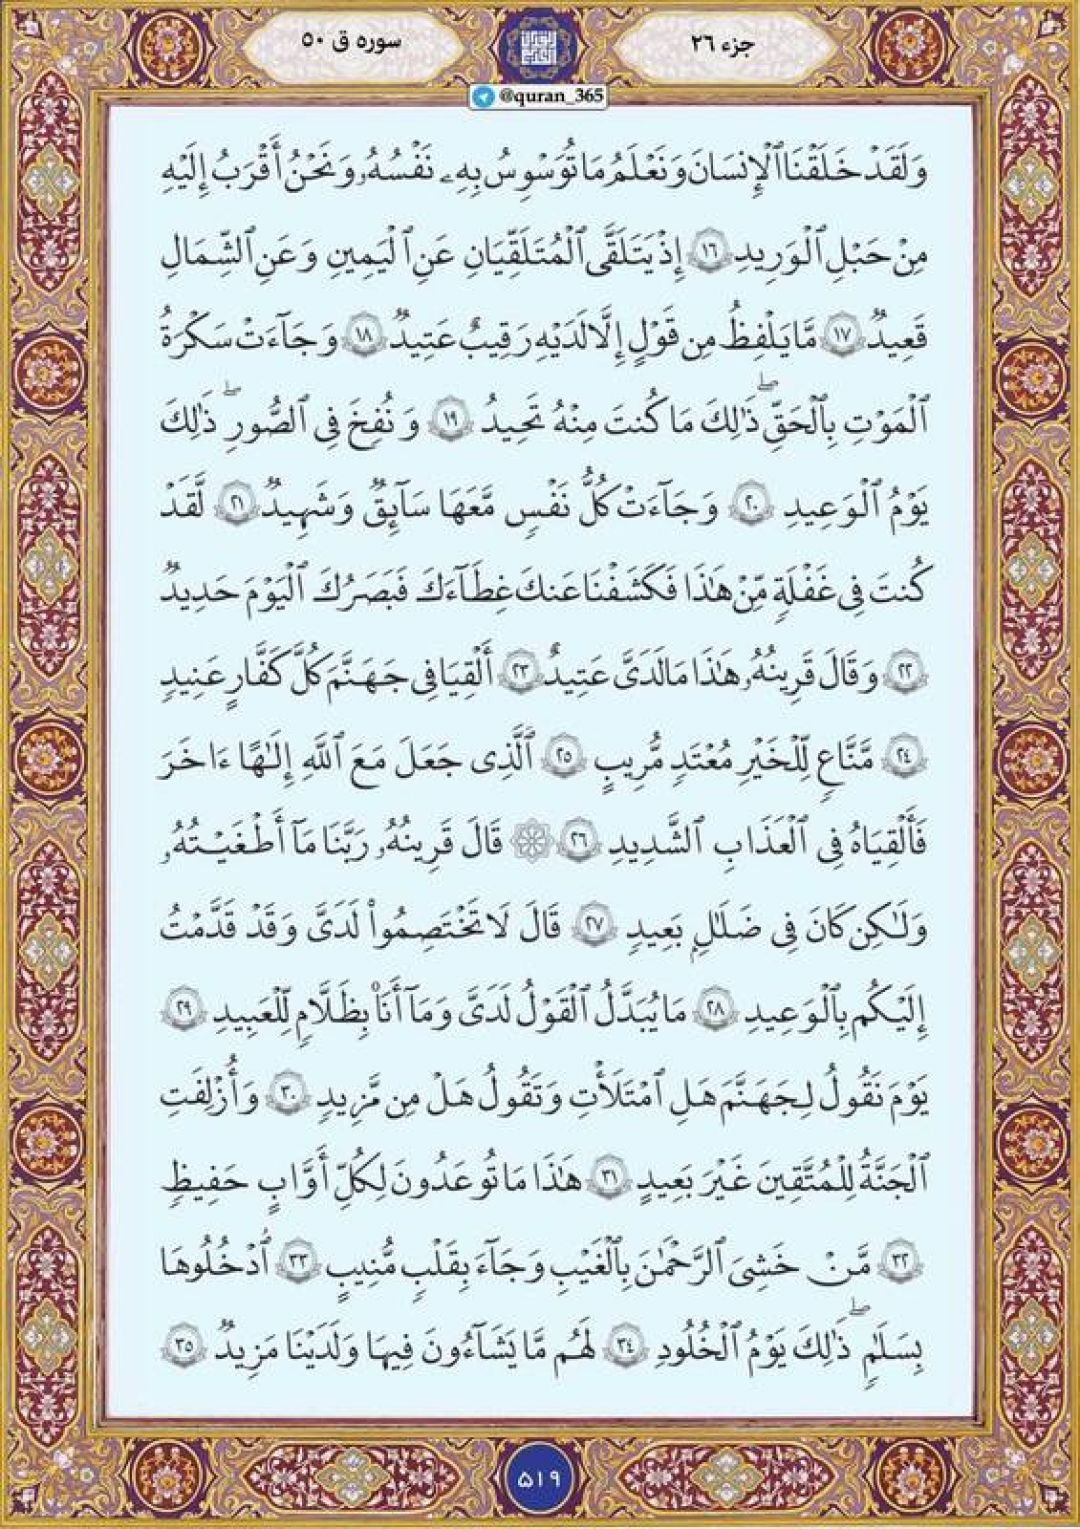 جزء ٢٦
سوره ق ٥٠
@quran_365
وَلَقَدْ خَلَقْنَا ٱلْإِنسَانَ وَنَعْلَمُ مَا تُوَسْوِسُ بِهِۦ نَفْسُهُۥ وَنَحْنُ أَقْرَبُ إِلَيْهِ
مِنْ حَبْلِ ٱلْوَرِيدِ ١٦ إِذْ يَتَلَقَّى ٱلْمُتَلَقِّيَانِ عَنِ ٱلْيَمِينِ وَعَنِ ٱلشِّمَالِ
قَعِيدٌ ١٧ مَّا يَلْفِظُ مِن قَوْلٍ إِلَّا لَدَيْهِ رَقِيبٌ عَتِيدٌ ١٨ وَجَآءَتْ سَكْرَةُ
ٱلْمَوْتِ بِٱلْحَقِّ ۖ ذَٰلِكَ مَا كُنتَ مِنْهُ تَحِيدُ ١٩ وَنُفِخَ فِى ٱلصُّورِ ۖ ذَٰلِكَ
يَوْمُ ٱلْوَعِيدِ ٢٠ وَجَآءَتْ كُلُّ نَفْسٍ مَّعَهَا سَآئِقٌ وَشَهِيدٌ ٢١ لَّقَدْ
كُنتَ فِى غَفْلَةٍ مِّنْ هَٰذَا فَكَشَفْنَا عَنكَ غِطَآءَكَ فَبَصَرُكَ ٱلْيَوْمَ حَدِيدٌ
٢٢ وَقَالَ قَرِينُهُۥ هَٰذَا مَا لَدَىَّ عَتِيدٌ ٢٣ أَلْقِيَا فِى جَهَنَّمَ كُلَّ كَفَّارٍ عَنِيدٍ
٢٤ مَّنَّاعٍ لِّلْخَيْرِ مُعْتَدٍ مُّرِيبٍ ٢٥ ٱلَّذِى جَعَلَ مَعَ ٱللَّهِ إِلَٰهًا ءَاخَرَ
فَأَلْقِيَاهُ فِى ٱلْعَذَابِ ٱلشَّدِيدِ ٢٦ قَالَ قَرِينُهُۥ رَبَّنَا مَآ أَطْغَيْتُهُۥ
وَلَٰكِن كَانَ فِى ضَلَٰلٍۭ بَعِيدٍ ٢٧ قَالَ لَا تَخْتَصِمُوا۟ لَدَىَّ وَقَدْ قَدَّمْتُ
إِلَيْكُم بِٱلْوَعِيدِ ٢٨ مَا يُبَدَّلُ ٱلْقَوْلُ لَدَىَّ وَمَآ أَنَا۠ بِظَلَّامٍ لِّلْعَبِيدِ ٢٩
يَوْمَ نَقُولُ لِجَهَنَّمَ هَلِ ٱمْتَلَأْتِ وَتَقُولُ هَلْ مِن مَّزِيدٍ ٣٠ وَأُزْلِفَتِ
ٱلْجَنَّةُ لِلْمُتَّقِينَ غَيْرَ بَعِيدٍ ٣١ هَٰذَا مَا تُوعَدُونَ لِكُلِّ أَوَّابٍ حَفِيظٍ
٣٢ مَّنْ خَشِىَ ٱلرَّحْمَٰنَ بِٱلْغَيْبِ وَجَآءَ بِقَلْبٍ مُّنِيبٍ ٣٣ ٱدْخُلُوهَا
بِسَلَٰمٍ ۖ ذَٰلِكَ يَوْمُ ٱلْخُلُودِ ٣٤ لَهُم مَّا يَشَآءُونَ فِيهَا وَلَدَيْنَا مَزِيدٌ ٣٥
۵۱۹